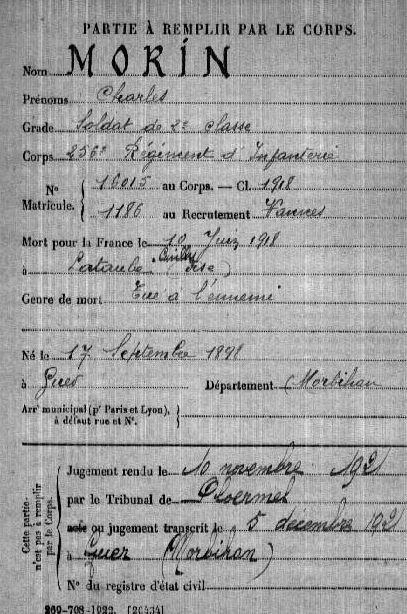 PARTIE À REMPLIR PAR LE CORPS.
Nom MORIN
Prénoms Charles
Grade Soldat de 2e classe
Corps 256e Régiment d'Infanterie
No Matricule. { 16015 au Corps. — Cl. 1918
1186 au Recrutement Vannes
Mort pour la France le 10 Juin 1918
à Lataule (Oise)
Genre de mort Tué à l'ennemi
Né le 17 Septembre 1898
à Guer Département Morbihan
Arrt municipal (pr Paris et Lyon), à défaut rue et No. }
Cette partie n'est pas à remplir par le Corps.
Jugement rendu le 10 novembre 1921
par le Tribunal de Ploermel
acte ou jugement transcrit le 5 décembre 1921
à Guer (Morbihan)
No du registre d'état civil
269-708-1922. [26434]